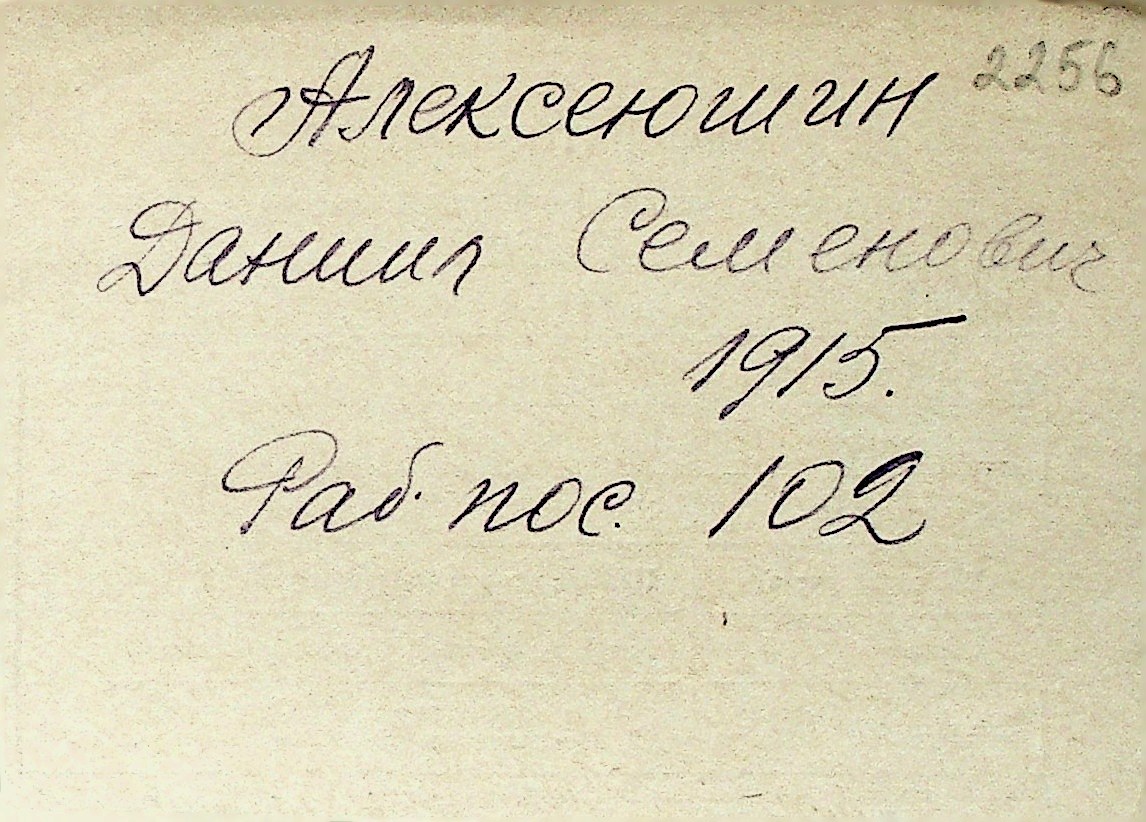 2256
Алексеюшин
Даниил Семенович
1915.
Раб. пос. 102